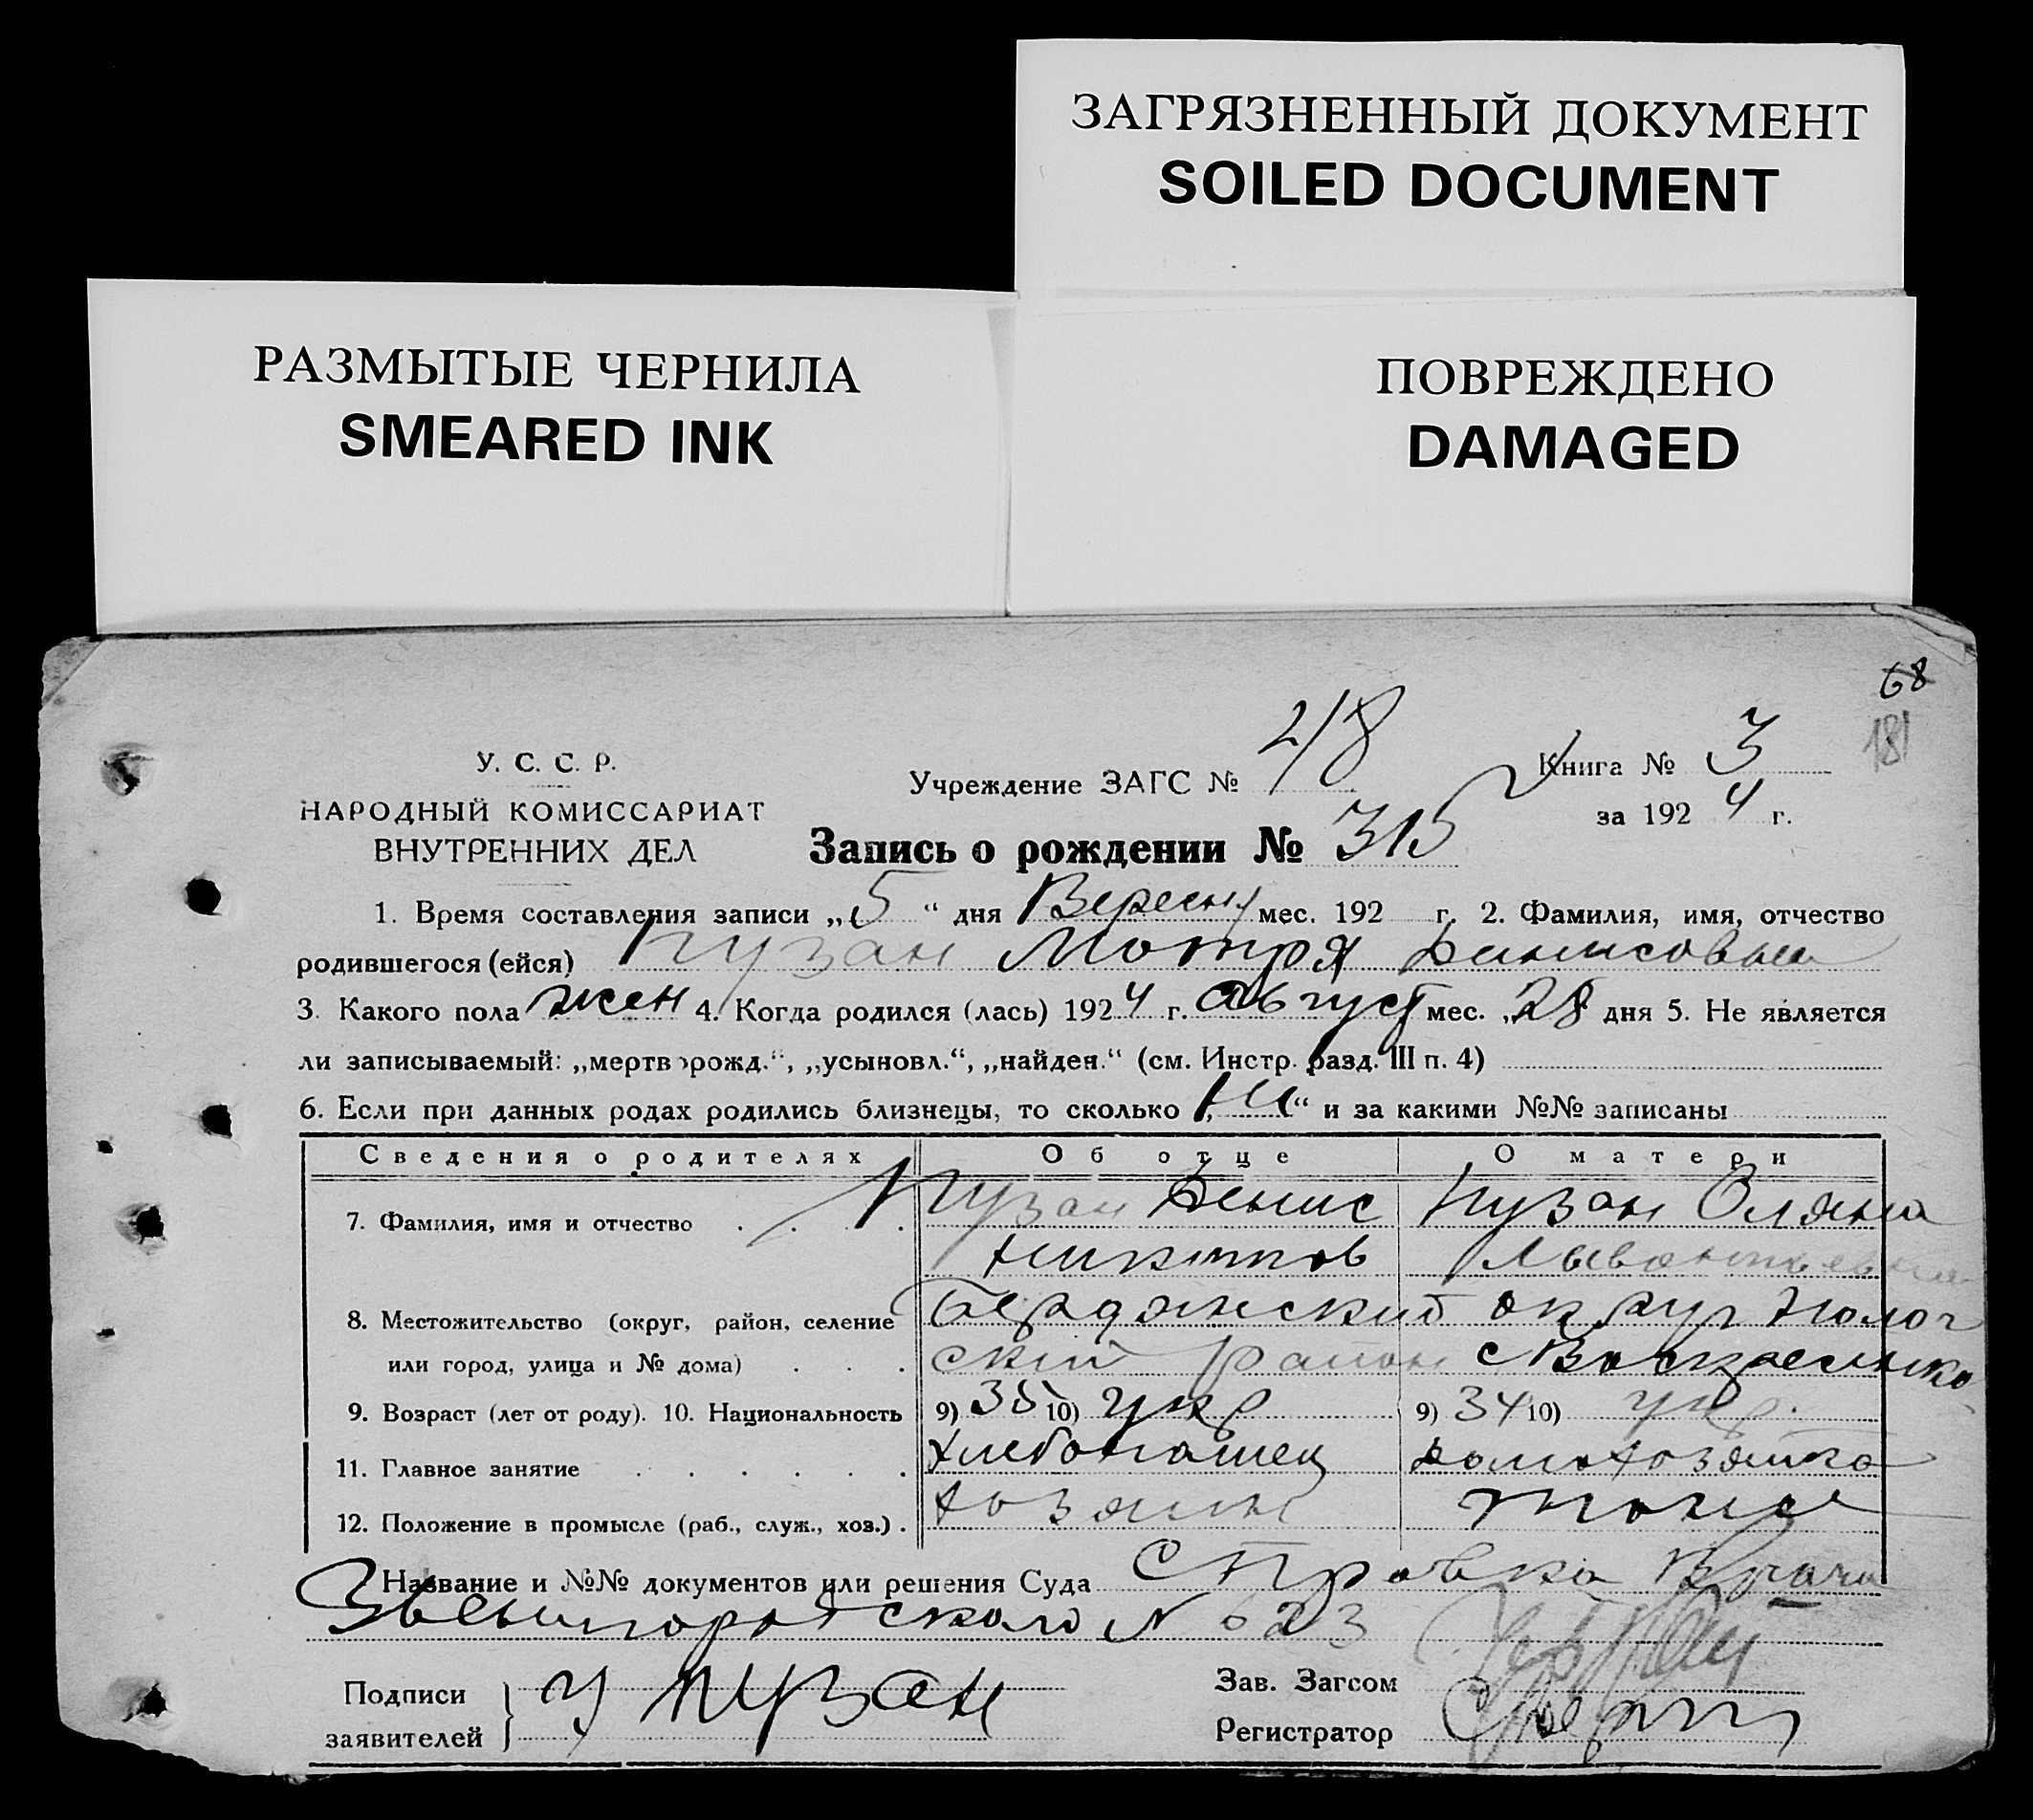 ЗАГРЯЗНЕННЫЙ ДОКУМЕНТ
SOILED DOCUMENT
РАЗМЫТЫЕ ЧЕРНИЛА
SMEARED INK
ПОВРЕЖДЕНО
DAMAGED
68
181
У. С. С. Р.
НАРОДНЫЙ КОМИССАРИАТ
ВНУТРЕННИХ ДЕЛ
Учреждение ЗАГС № 218
Книга № 3
за 1924 г.
Запись о рождении № 315
1. Время составления записи „5“ дня Вересня мес. 192 г. 2. Фамилия, имя, отчество
родившегося (ейся) Пузан Мотря Данисовна
3. Какого пола жен 4. Когда родился (лась) 1924 г. Август мес. „28 дня 5. Не является
ли записываемый: „мертворожд.“, „усыновл.“, „найден.“ (см. Инстр. разд. III п. 4)
6. Если при данных родах родились близнецы, то сколько „ “ и за какими №№ записаны
Сведения о родителях Об отце О матери
7. Фамилия, имя и отчество Пузан Денис Пузан Оляна
Никитов
8. Местожительство (округ, район, селение Бердянский округ Полог
или город, улица и № дома) ский район с Воскресенка
9. Возраст (лет от роду). 10. Национальность 9) 35 10) укр 9) 34 10) укр.
11. Главное занятие Хлебопашец домохозяйка
12. Положение в промысле (раб., служ., хоз.) хозяин
Название и №№ документов или решения Суда Справка Врача
Звенигородского N 623
Подписи
заявителей } Пузан
Зав. Загсом
Регистратор